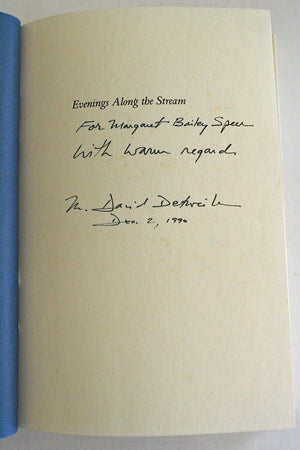 Evenings Along the Stream
For Margaret Bailey Speer
With warm regards
M. David Detweiler
Dec. 2, 1990